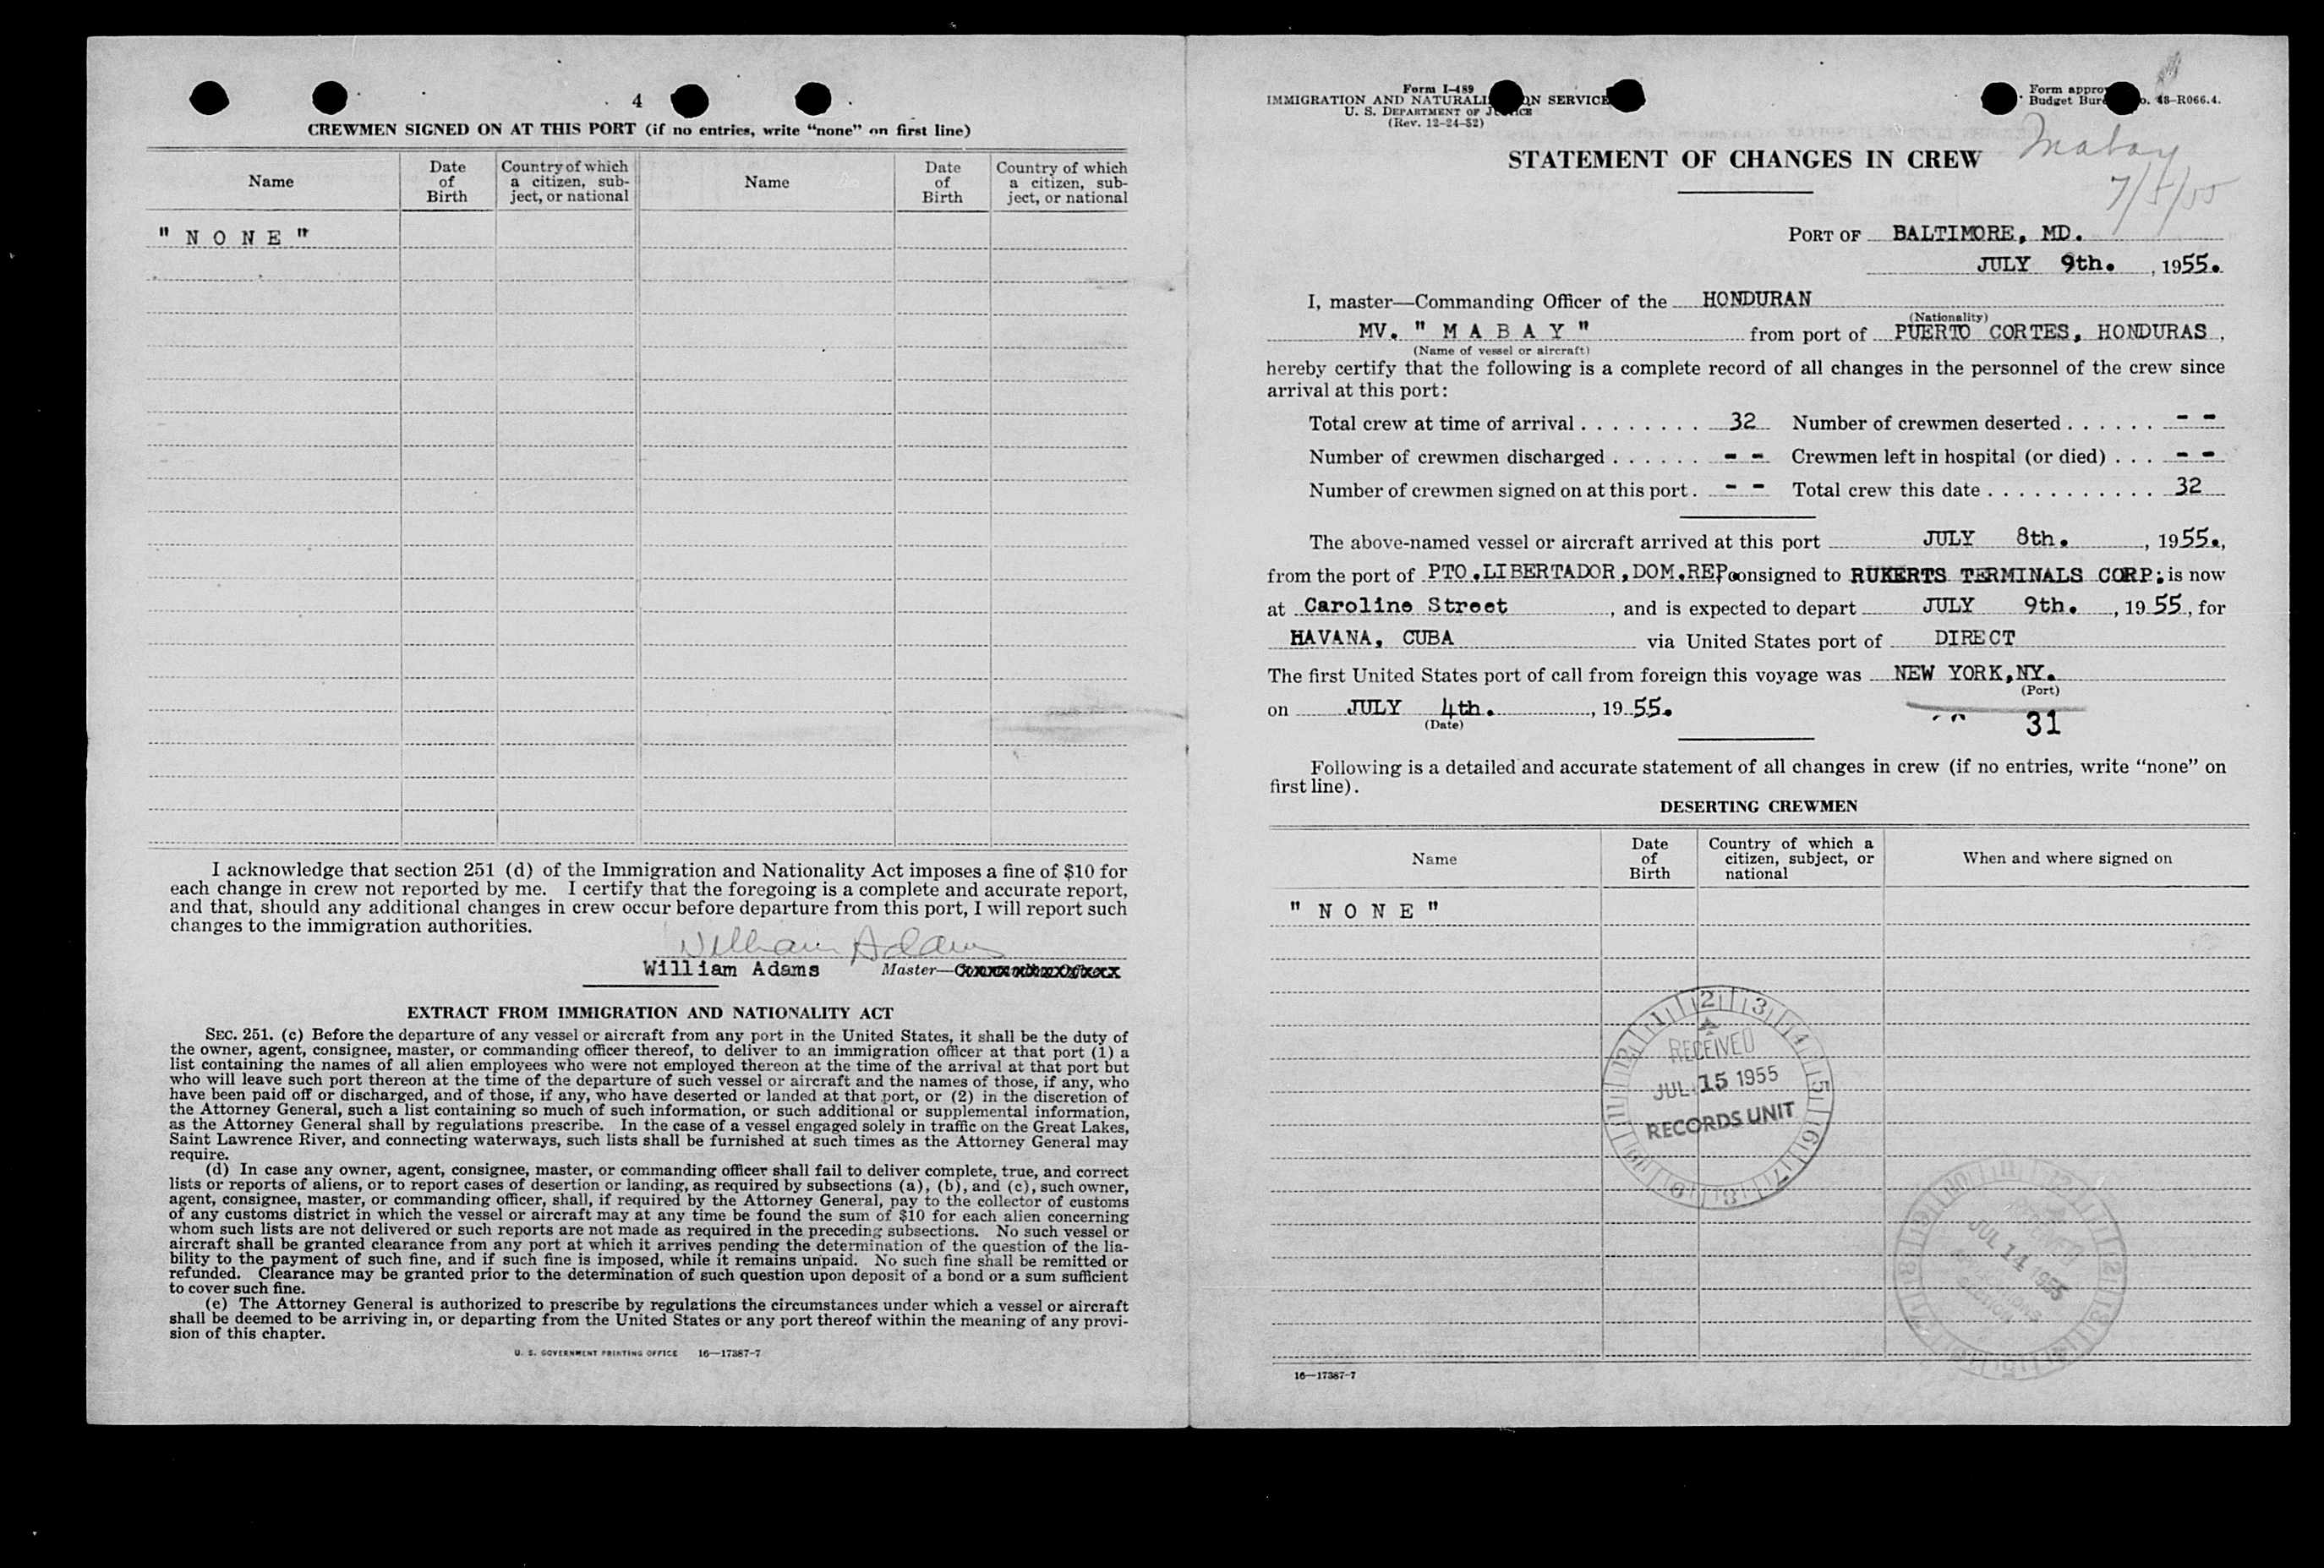 4
CREWMEN SIGNED ON AT THIS PORT (if no entries, write “none” on first line)
Name
Date of Birth
Country of which a citizen, subject, or national
Name
Date of Birth
Country of which a citizen, subject, or national
" N O N E "
I acknowledge that section 251 (d) of the Immigration and Nationality Act imposes a fine of $10 for
each change in crew not reported by me. I certify that the foregoing is a complete and accurate report,
and that, should any additional changes in crew occur before departure from this port, I will report such
changes to the immigration authorities.
William Adams
William Adams Master—
EXTRACT FROM IMMIGRATION AND NATIONALITY ACT
SEC. 251. (c) Before the departure of any vessel or aircraft from any port in the United States, it shall be the duty of
the owner, agent, consignee, master, or commanding officer thereof, to deliver to an immigration officer at that port (1) a
list containing the names of all alien employees who were not employed thereon at the time of the arrival at that port but
who will leave such port thereon at the time of the departure of such vessel or aircraft and the names of those, if any, who
have been paid off or discharged, and of those, if any, who have deserted or landed at that port, or (2) in the discretion of
the Attorney General, such a list containing so much of such information, or such additional or supplemental information,
as the Attorney General shall by regulations prescribe. In the case of a vessel engaged solely in traffic on the Great Lakes,
Saint Lawrence River, and connecting waterways, such lists shall be furnished at such times as the Attorney General may
require.
(d) In case any owner, agent, consignee, master, or commanding officer shall fail to deliver complete, true, and correct
lists or reports of aliens, or to report cases of desertion or landing, as required by subsections (a), (b), and (c), such owner,
agent, consignee, master, or commanding officer, shall, if required by the Attorney General, pay to the collector of customs
of any customs district in which the vessel or aircraft may at any time be found the sum of $10 for each alien concerning
whom such lists are not delivered or such reports are not made as required in the preceding subsections. No such vessel or
aircraft shall be granted clearance from any port at which it arrives pending the determination of the question of the lia-
bility to the payment of such fine, and if such fine is imposed, while it remains unpaid. No such fine shall be remitted or
refunded. Clearance may be granted prior to the determination of such question upon deposit of a bond or a sum sufficient
to cover such fine.
(e) The Attorney General is authorized to prescribe by regulations the circumstances under which a vessel or aircraft
shall be deemed to be arriving in, or departing from the United States or any port thereof within the meaning of any provi-
sion of this chapter.
U. S. GOVERNMENT PRINTING OFFICE 16—17387-7
Form I-489
IMMIGRATION AND NATURALI N SERVICE
U. S. DEPARTMENT OF JUSTICE
(Rev. 12-24-52)
Form appro
Budget Bur o. 43-R066.4.
STATEMENT OF CHANGES IN CREW
Mabay
7/5/55
PORT OF BALTIMORE, MD.
JULY 9th. , 1955.
I, master—Commanding Officer of the HONDURAN
(Nationality)
MV. " M A B A Y " from port of PUERTO CORTES, HONDURAS ,
(Name of vessel or aircraft)
hereby certify that the following is a complete record of all changes in the personnel of the crew since
arrival at this port:
Total crew at time of arrival . . . . . . . . 32 Number of crewmen deserted . . . . . . - -
Number of crewmen discharged . . . . . . - - Crewmen left in hospital (or died) . . . - -
Number of crewmen signed on at this port . - - Total crew this date . . . . . . . . . . . 32
The above-named vessel or aircraft arrived at this port JULY 8th. , 1955.,
from the port of PTO.LIBERTADOR,DOM.REP. consigned to RUKERTS TERMINALS CORP; is now
at Caroline Street , and is expected to depart JULY 9th. , 1955, for
HAVANA, CUBA via United States port of DIRECT
The first United States port of call from foreign this voyage was NEW YORK,NY.
(Port)
on JULY 4th. , 1955.
(Date)
31
Following is a detailed and accurate statement of all changes in crew (if no entries, write “none” on
first line).
DESERTING CREWMEN
Name
Date of Birth
Country of which a citizen, subject, or national
When and where signed on
" N O N E "
RECEIVED
JUL 15 1955
RECORDS UNIT
JUL 14 1955
16—17387-7